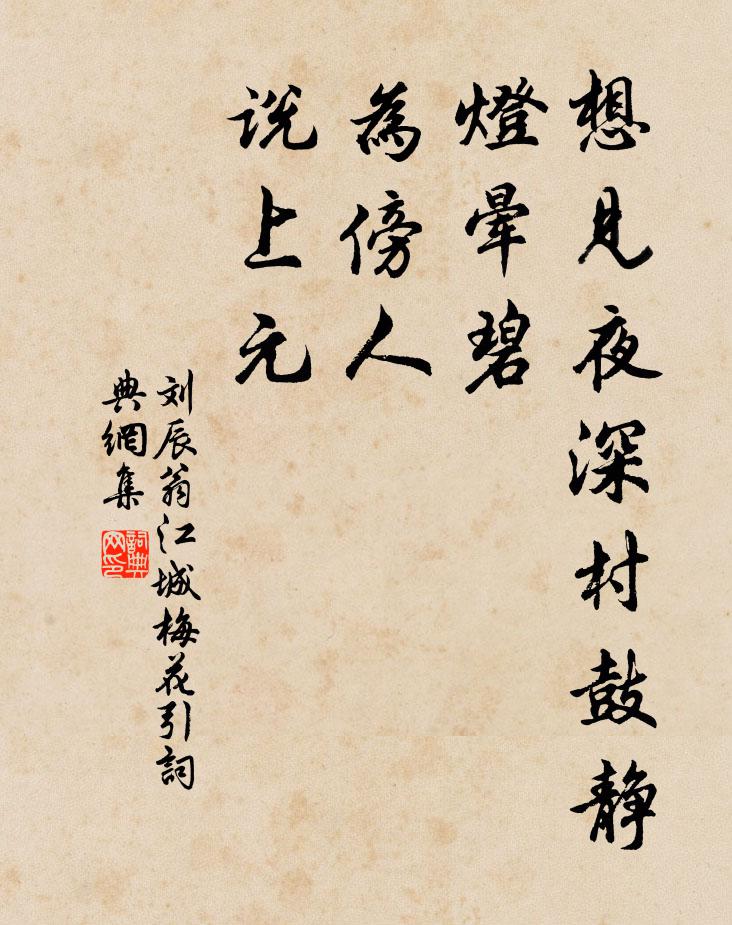 想見夜深村鼓静
燈暈碧
為傍人
説上元
刘辰翁江城梅花引詞
典網集
詞典
网印